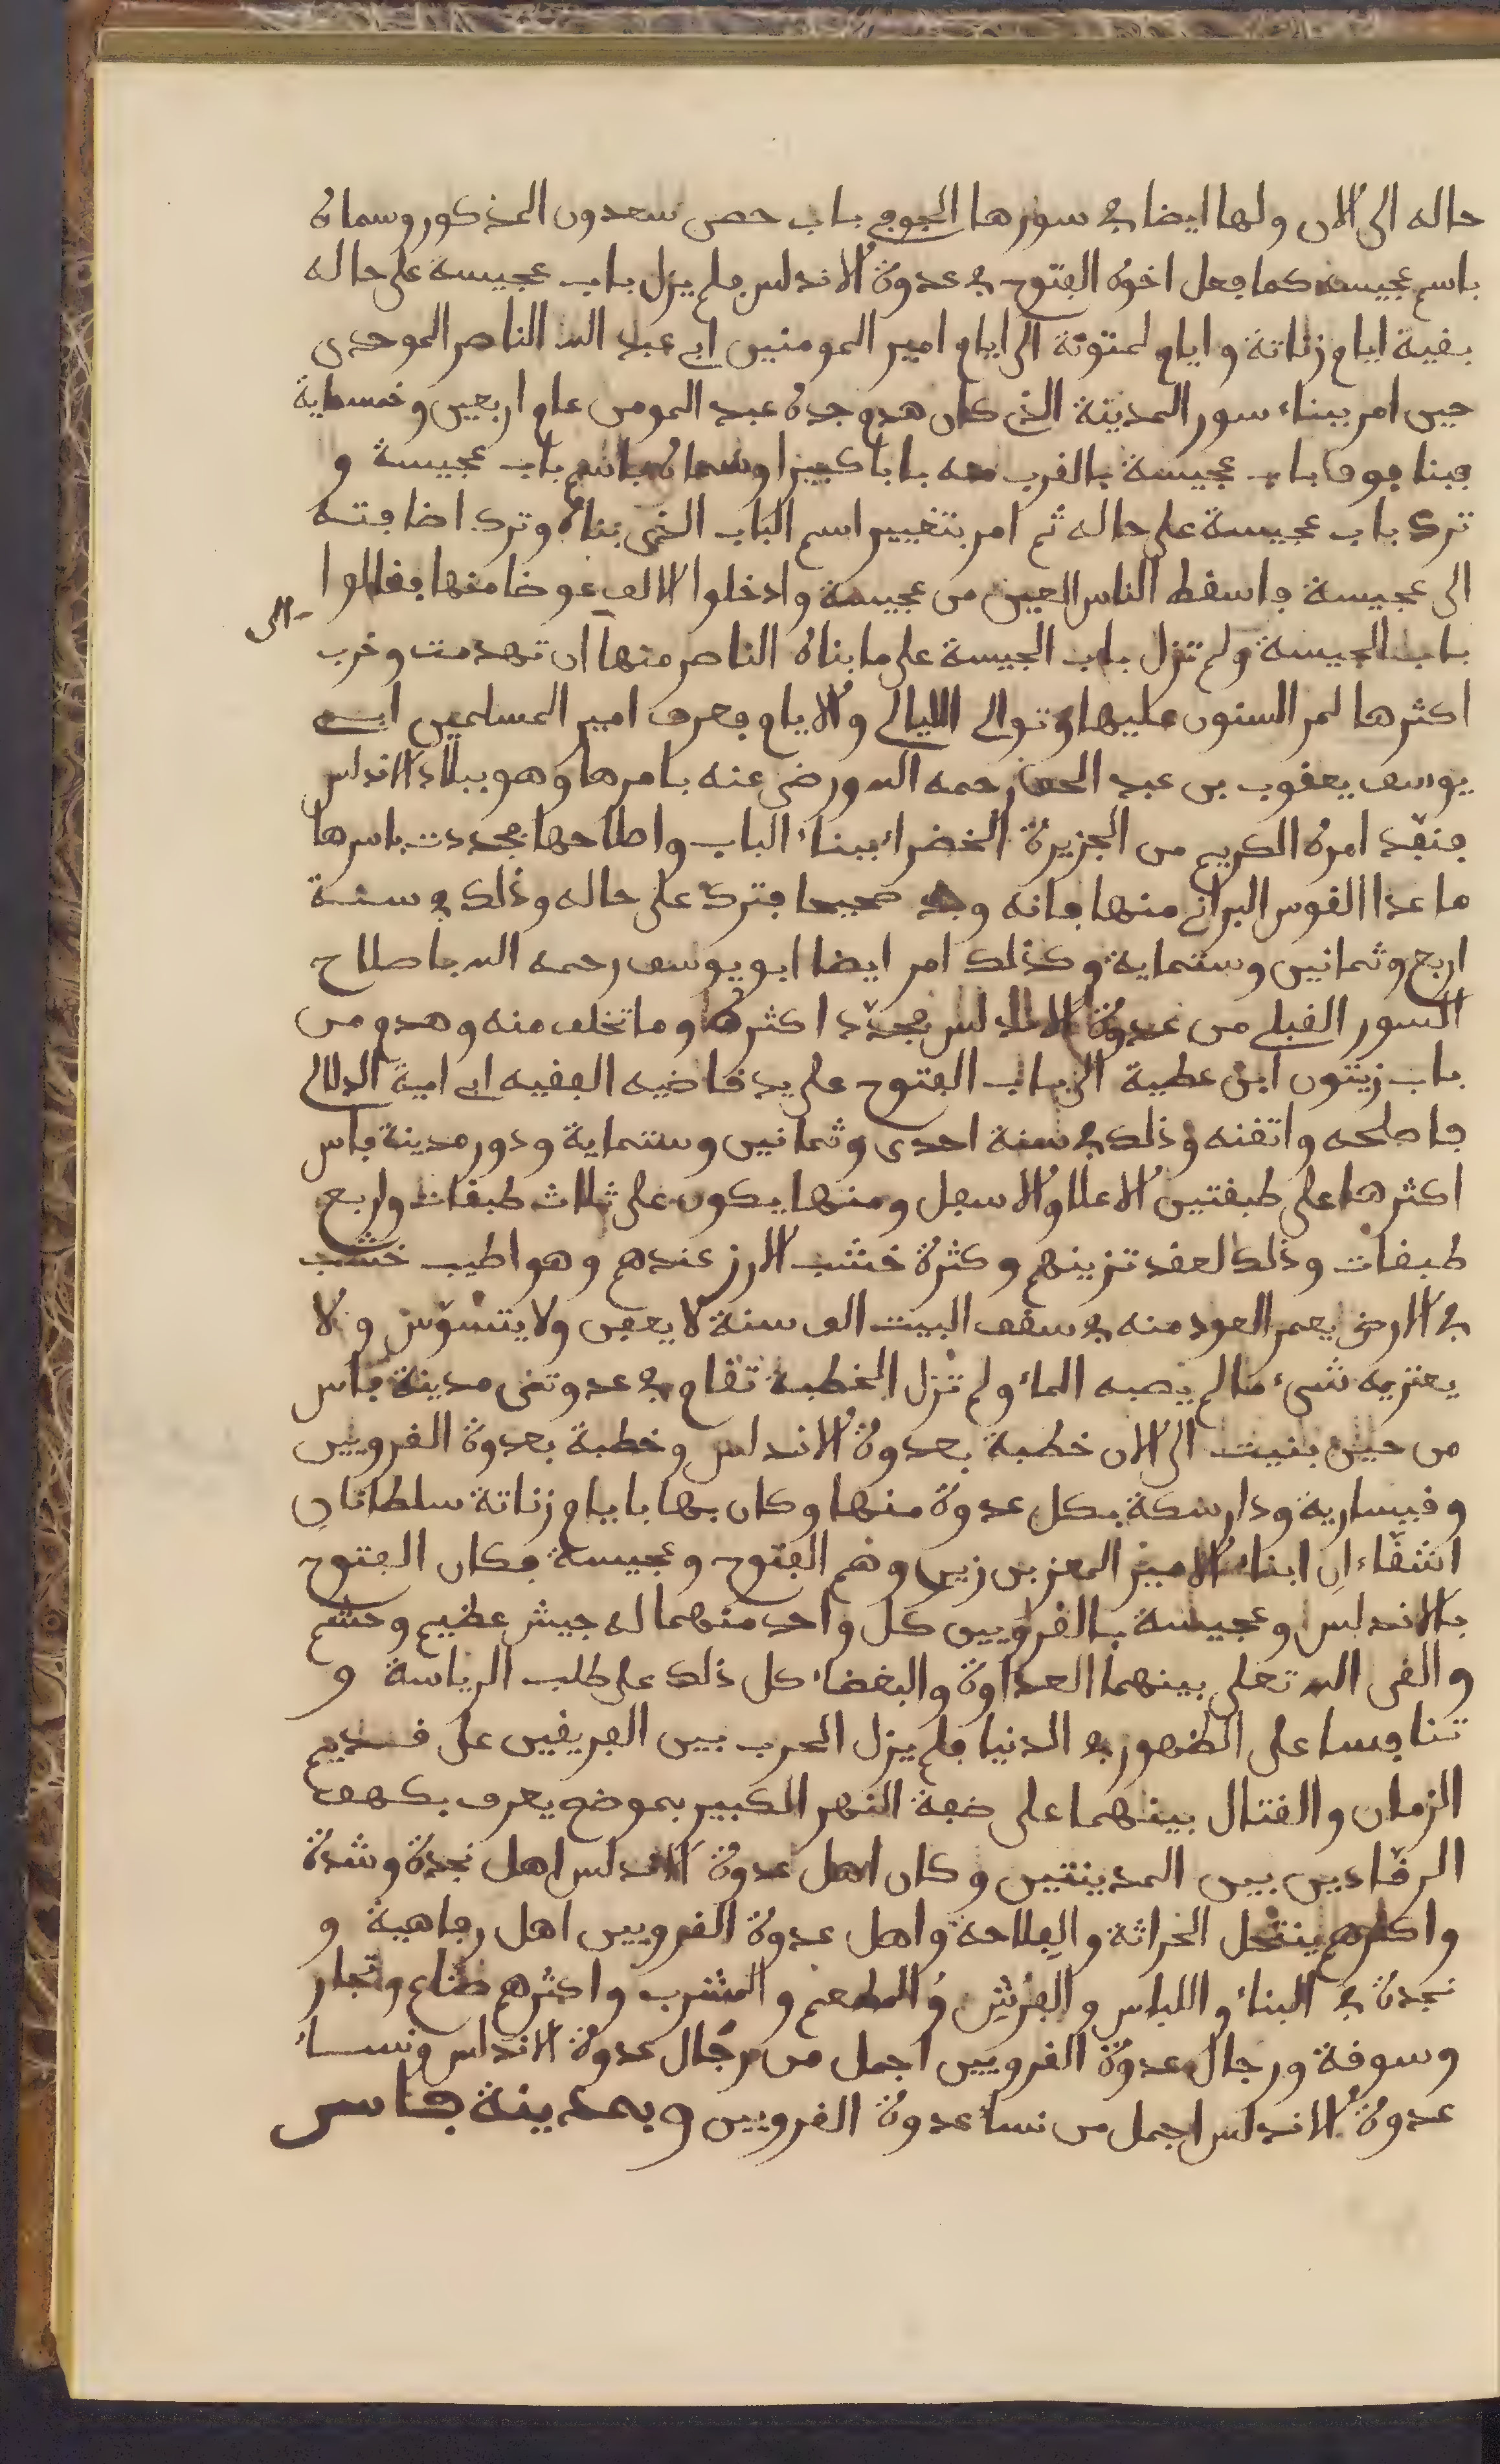 حاله الى الان ولها ايضا في سورها الجوفي باب حصن سعدون المذكور وسماه
باسم عجيسة كما فعل اخوه الفتوح في عدوة الاندلس فلم يزل باب عجيسة على حاله
بقية ايام زناتة وايام لمتونة الى ايام امير المومنين ابي عبد الله الناصر الموحدى
حين امر ببناء سور المدينة الذى كان هدم جده عبد المومن عام اربعين وخمسماية
فبنا فوق باب عجيسة بالقرب منه بابا كبيرا وسماه باسم باب عجيسة و
ترك باب عجيسة على حاله ثم امر بتغيير اسم الباب الذى بناه وترك اضافته
الى عجيسة فاسقط الناس العين من عجيسة وادخلوا الالف عوضا منها فقالوا
باب الجيسة ولم تزل باب الجيسة على ما بناه الناصر منها الى ان تهدمت وخرب
اكثرها لمر السنون عليها وتوالي الليالي والايام فعرف امير المسلمين ابي
يوسف يعقوب بن عبد الحق رحمه الله ورضى عنه بامرها وهو ببلاد الاندلس
فنفّد امره الكريم من الجزيرة الخضراء ببناء الباب واصلاحها فجددت باسرها
ما عدا القوس البراني منها فانه وجد صحيحا فترك على حاله وذلك في سنة
اربع وثمانين وستماية وكذلك امر ايضا ابو يوسف رحمه الله باصلاح
السور القبلي من عدوة الاندلس فجدّد اكثره وما تخلف منه وهدم من
باب زيتون ابن عطية الى باب الفتوح على يد قاضيه الفقيه ابي امية الدلالي
فاصلحه واتقنه وذلك في سنة احدى وثمانين وستماية ودور مدينة فاس
اكثرها على طبقتين الاعلا والاسفل ومنها يكون على ثلاث طبقات واربع
طبقات وذلك لعقد تزينهم وكثرة خشب الارز عندهم وهو اطيب خشب
في الارض يعمر العود منه في سقف البيت الف سنة لا يعفن ولا يتسوّس ولا
يعتريه شىء ما لم يصبه الماء ولم تزل الخطبة تقام في عدوتى مدينة فاس
من حين بنيت الى الان خطبة بعدوة الاندلس وخطبة بعدوة القرويين
وقيسارية ودار سكة بكل عدوة منها وكان بها بايام زناتة سلطانان
اشقّاءان ابناء الامير المعز بن زيرى وهم الفتوح وعجيسة فكان الفتوح
بالاندلس وعجيسة بالقرويين كل واحد منهما له جيش عظيم وحشم
والقى الله تعلى بينهما العداوة والبغضاء كل ذلك على طلب الرياسة و
تنافسا على الظهور في الدنيا فلم يزل الحرب بين الفريقين على قديم
الزمان والقتال بينهما على ضفة النهر الكبير بموضع يعرف بكهف
الرقّادين بين المدينتين وكان اهل عدوة الاندلس اهل نجدة وشدة
واكثرهم ينتحل الحراثة والفلاحة واهل عدوة القرويين اهل رفاهية و
نجدة في البناء واللباس والفرُش والمطعم والمشرب واكثرهم صناع وتجار
وسوقة ورجال عدوة القرويين اجمل من رجال عدوة الاندلس ونساء
عدوة الاندلس اجمل من نساء عدوة القرويين وبمدينة فاس